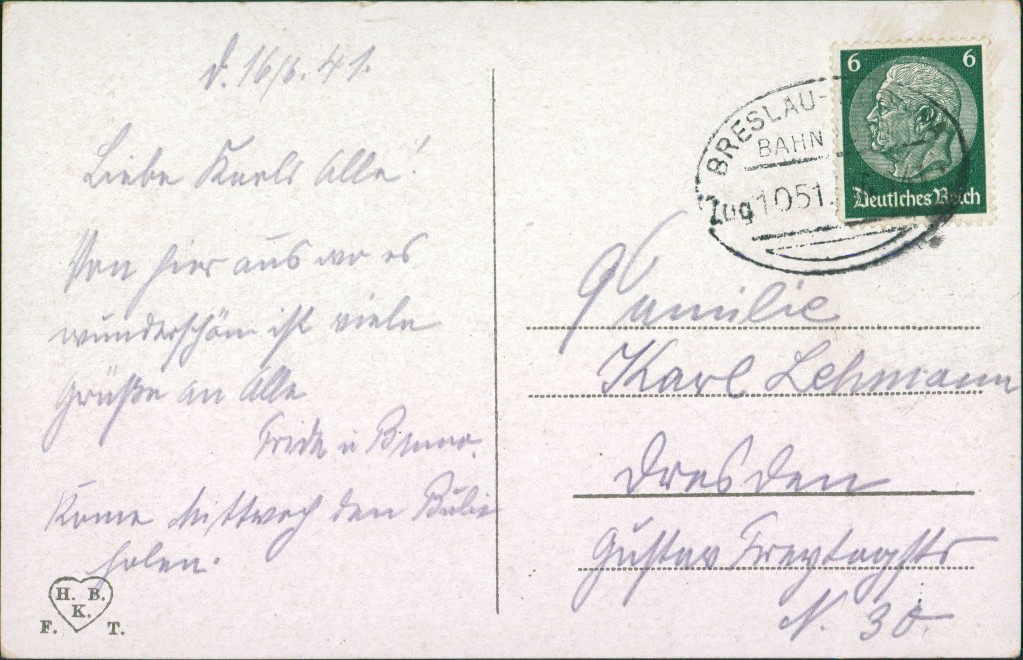 d. 16/6. 41.
Liebe Karls Alle!
Von hier aus wo es
wunderschön ist viele
Grüße an Alle
Frida u Bruno.
Kome Mittwoch den Bubi
holen.
H. B.
K.
F. T.
6 6
Deutsches Reich
BRESLAU-
BAHN
Zug 1051.
Familie
Karl Lehmann
Dresden
Gustav Freytagstr
N. 30.